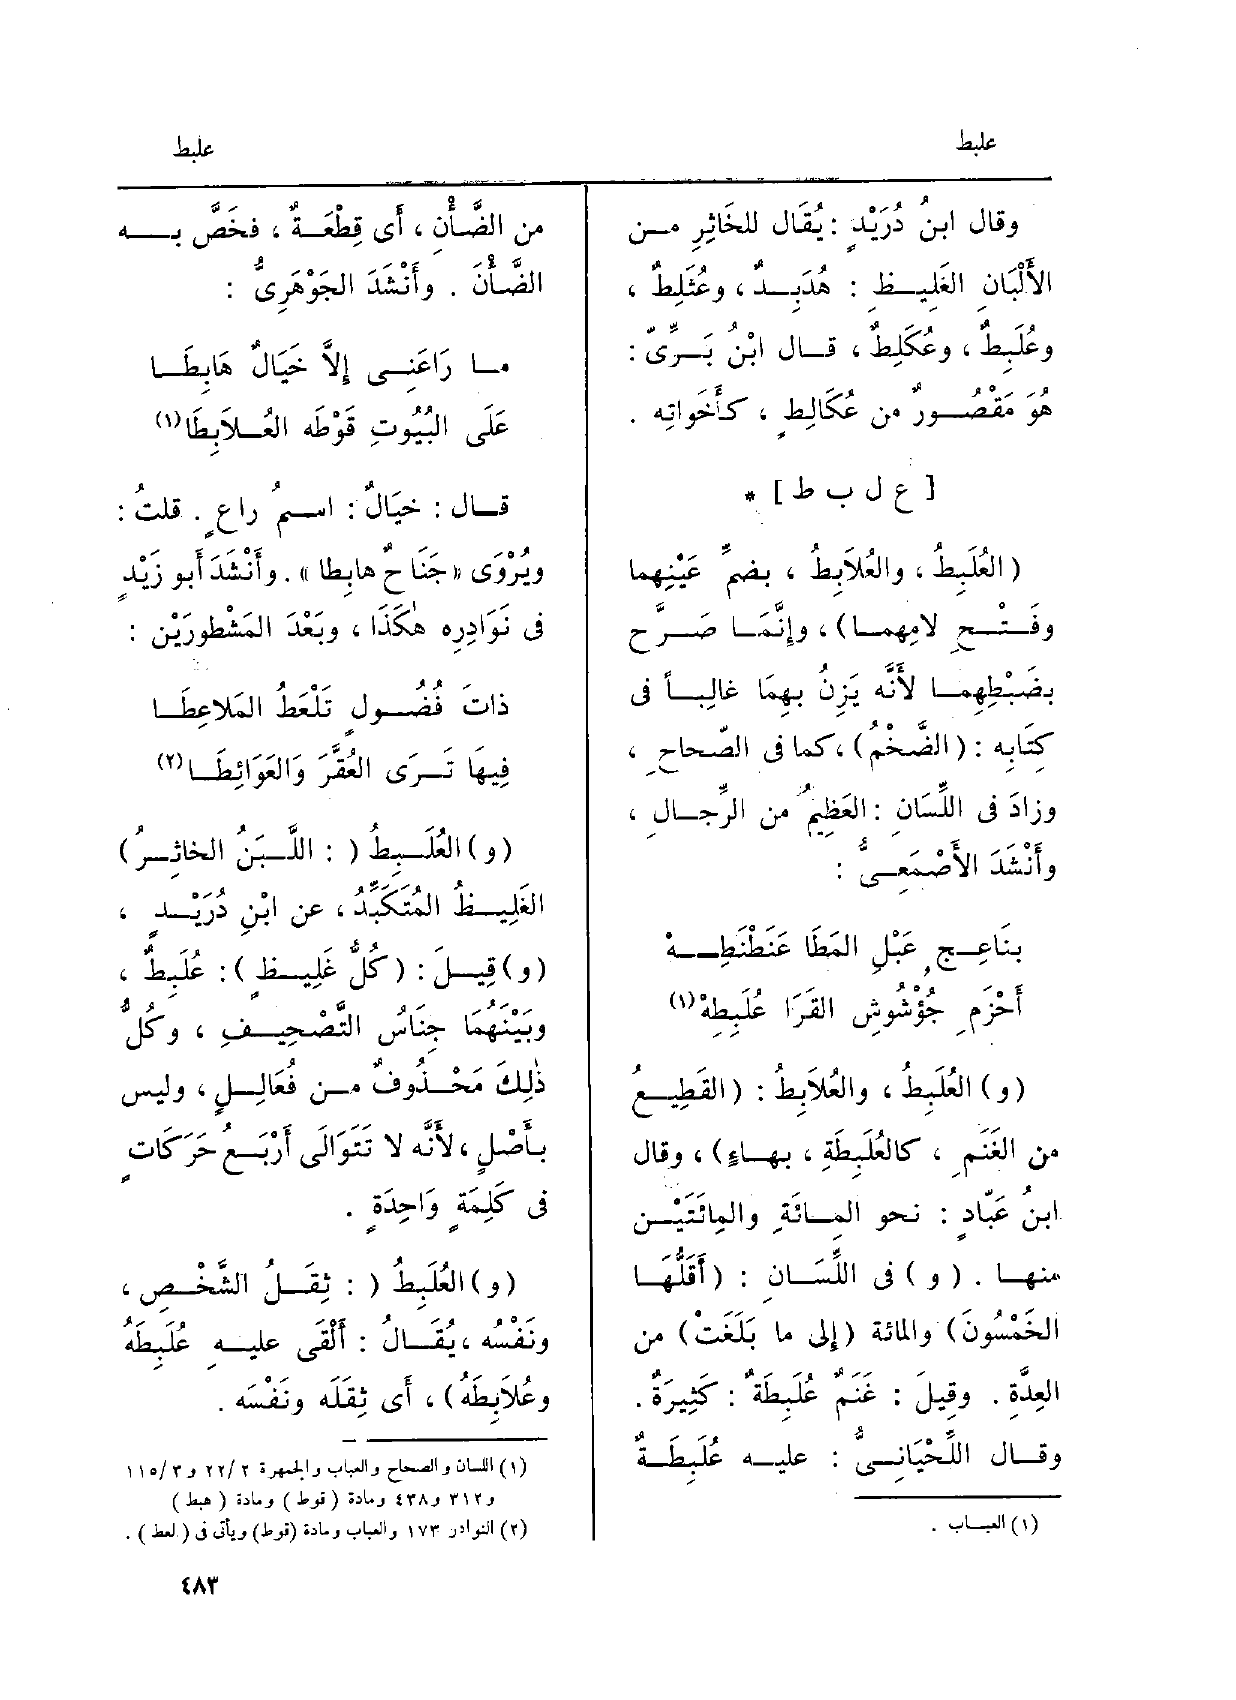 علبط
علبط
وقال ابنُ دُرَيْدٍ : يُقَال للخَاثِرِ مـن
الأَلْبَانِ الغَلِيـظِ : هُدَبِـدٌ ، وعُثَلِطٌ ،
وعُلَبِطٌ ، وعُكَلِطٌ ، قـال ابْنُ بَـرِّىّ :
هُوَ مَقْصُـورٌ من عُكَالِطٍ ، كـأَخَواتِه .
[ ع ل ب ط ] *
( العُلَبِطُ ، والعُلاَبِطُ ، بضمِّ عَيْنِهما
وفَـتْـحِ لامِهمـا) ، وإِنَّمَـا صَـرَّح
بضَبْطِهِمـا لأَنَّه يَزِنُ بهِمَا غالِبـاً فى
كِتَابِه : (الضَّخْمُ) ، كما فى الصّحاحِ ،
وزادَ فى اللِّسَانِ : العَظِيمُ من الرِّجـالِ ،
وأَنْشَدَ الأَصْمَعِـىُّ :
بنَاعِـجٍ عَبْلِ المَطَا عَنَطْنَطِـهْ
أَحْزَمِ جُؤْشُوشِ القَرَا عُلَبِطِهْ(١)
(و) العُلَبِطُ ، والعُلاَبِطُ : (القَطِيـعُ
من الغَنَمِ ، كالعُلَبِطَةِ ، بهـاءٍ) ، وقال
ابنُ عَبّادٍ : نحو المـائَةِ والمِائَتَيْـن
منهـا . (و) فى اللِّسَـانِ : (أَقَلُّهَـا
الخَمْسُونَ) والمائة (إِلى ما بَلَغَتْ) من
العِدَّةِ . وقِيلَ : غَنَمٌ عُلَبِطَةٌ : كَثِيرَةٌ .
وقـال اللِّحْيَانِـىُّ : عليـه عُلَبِطَـةٌ
(١) العبـاب .
من الضَّـأْنِ ، أَى قِطْعَـةٌ ، فخَصَّ بـه
الضَّـأْنَ . وأَنْشَدَ الجَوْهَرِىُّ :
مـا رَاعَنِـى إِلاَّ خَيَالٌ هَابِطَـا
عَلَى البُيُوتِ قَوْطَه العُـلابِطَا(١)
قـال : خيَالٌ : اسـمُ راعٍ . قلتُ :
ويُرْوَى «جَنَاحٌ هابِطا» . وأَنْشَدَ أَبو زَيْدٍ
فى نَوَادِرِه هٰكَذَا ، وبَعْدَ المَشْطورَيْن :
ذاتَ فُضُـولٍ تَلْعَطُ المَلاعِطَـا
فِيهَا تَـرَى العُقَّرَ وَالعَوَائِطَـا(٢)
(و) العُلَـبِطُ ( : اللَّـبَنُ الخاثِـرُ)
الغَلِيـظُ المُتَكَبِّدُ ، عن ابْنِ دُرَيْـدٍ ،
(و) قِيـلَ : (كُلُّ غَلِيـظٍ ) : عُلَبِطٌ ،
وبَيْنَهُمَا جِنَاسُ التَّصْحِيـفِ ، وكُلُّ
ذٰلِكَ مَحْـذُوفٌ مـن فُعَالِـلٍ ، وليس
بـأَصْلٍ ، لأَنَّه لا تَتَوَالَى أَرْبَـعُ حَرَكَاتٍ
فى كَلِمَةٍ وَاحِدَةٍ .
(و) العُلَبِطُ ( : ثِقَـلُ الشَّخْـصِ ،
ونَفْسُه ، يُقَـالُ : أَلْقَى عليـهِ عُلَبِطَهُ
وعُلاَبِطَهُ) ، أَى ثِقَلَه ونَفْسَه .
(١) اللسان والصحاح والعباب والجمهرة ٢٢/٢ و ١١٥/٣
و ٣١٢ و ٤٣٨ ومادة ( قوط ) ومادة ( هبط )
(٢) النوادر ١٧٣ والعباب ومادة (قوط) ويأتى فى ( لعط ) .
٤٨٣